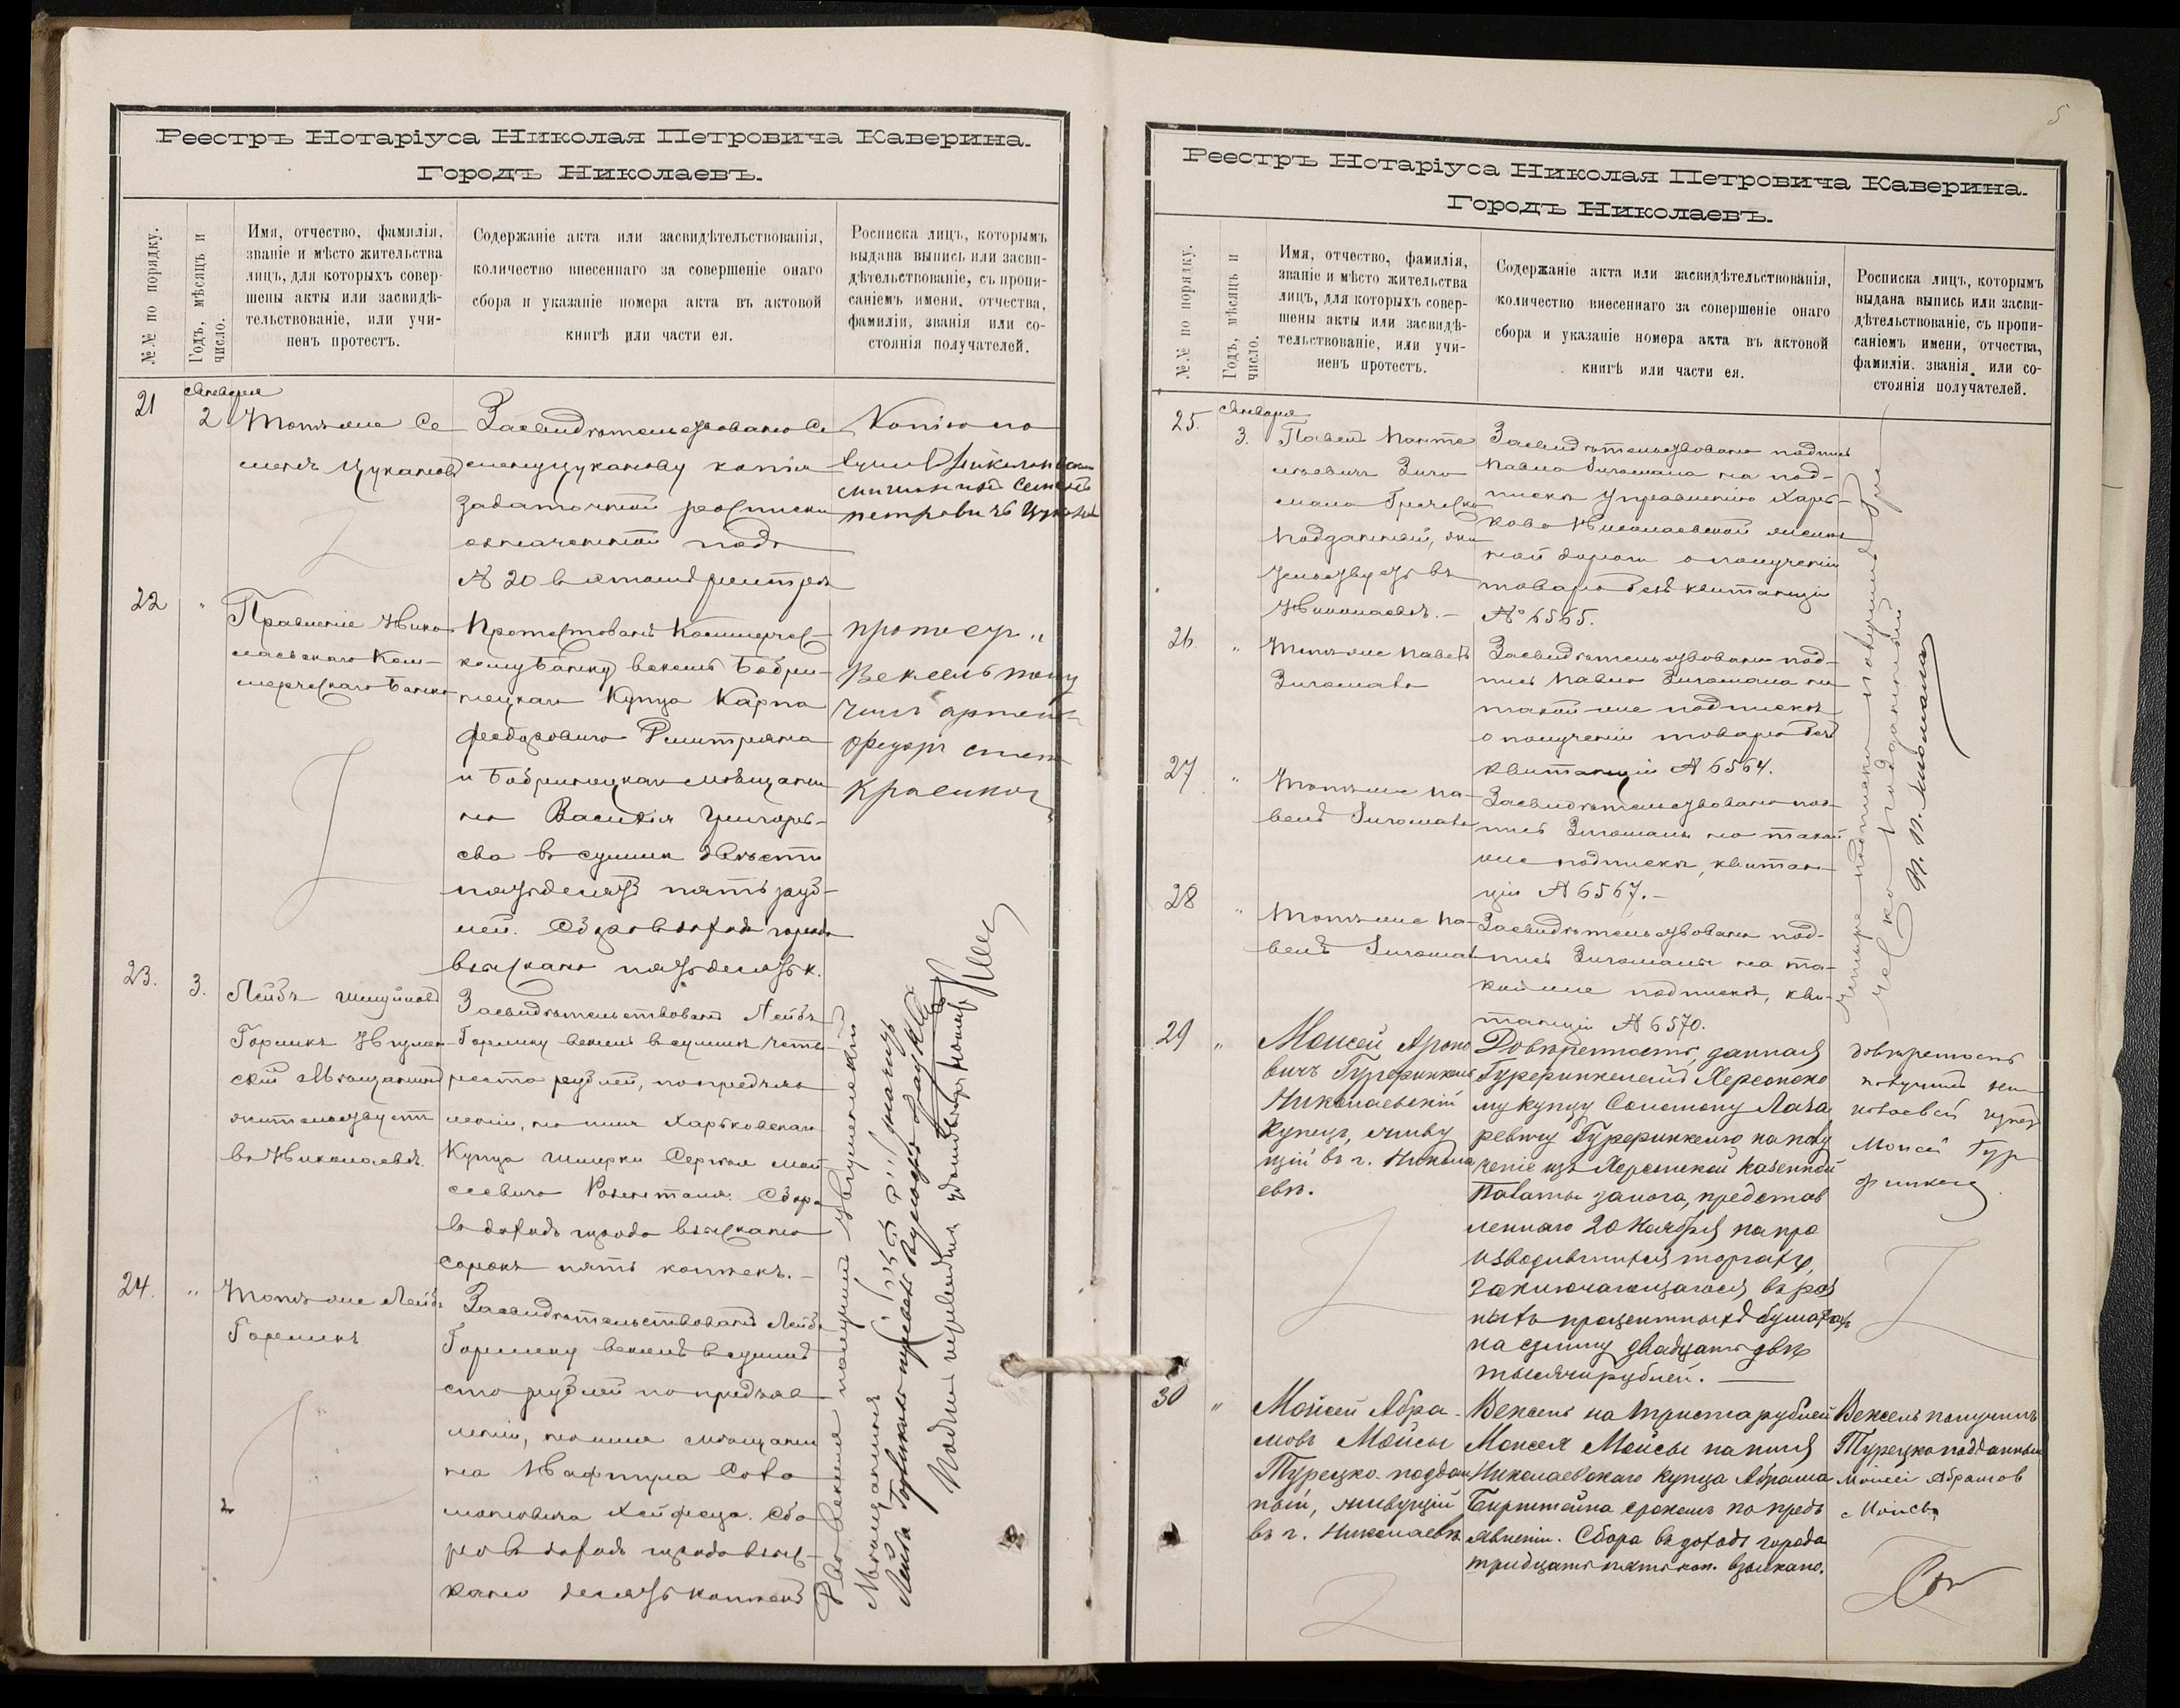 Реестръ Нотаріуса Николая Петровича Каверина.
Городъ Николаевъ.
№№ по порядку.
Годъ, мѣсяцъ и
число.
Имя, отчество, фамилія,
званіе и мѣсто жительства
лицъ, для которыхъ совер-
шены акты или засвидѣ-
тельствованіе, или учи-
ненъ протестъ.
Содержаніе акта или засвидѣтельствованія,
количество внесеннаго за совершеніе онаго
сбора и указаніе номера акта въ актовой
книгѣ или части ея.
Росписка лицъ, которымъ
выдана выпись или засви-
дѣтельствованіе, съ пропи-
саніемъ имени, отчества,
фамиліи, званія или со-
стоянія получателей.
21
Января
2
Тотъ же Се
менъ Цукановъ
Засвидѣтельствована Се
мену Цуканову копія
задаточной росписки
означенной подъ
№ 20 въ этомъ реестрѣ
Копію по
петровичъ
22
"
Правленіе Нико
лаевскаго Ком-
мерческаго Банка
Протестованъ Коммерчес-
кому Банку вексель Бобри-
нецкаго Купца Карпа
и Бобринецкаго мѣщани
на Василія Григорь-
ева въ суммѣ двѣсти
пятьдесятъ пять руб-
лей. Сбора въ доходъ города
взыскано пятьдесятъ к.
протест. и
Вексель полу
чилъ артель
23.
3.
Лейбъ
Горликъ
скій Мѣщанинъ
жительствуетъ
въ Николаевѣ.
Засвидѣтельствованъ Лейбѣ
Горлику вексель въ суммѣ четы-
реста рублей, по предъяв
ленію, на имя Харьковскаго
Купца
сеевича Розенталя. Сбора
въ доходъ города взыскано
сорокъ пять копѣекъ.-
24.
"
Тотъ же Лейбъ
Горликъ
Засвидѣтельствованъ Лейбѣ
Горлику вексель въ суммѣ
сто рублей по предъяв
ленію, на имя мѣщани
на Нафтула Соло
моновича Хейфеца. Сбо
ра въ доходъ города взыс-
кано десять копѣекъ
Два векселя получилъ
Мѣщанинъ
Лейба Горликъ
5
Реестръ Нотаріуса Николая Петровича Каверина.
Городъ Николаевъ.
№№ по порядку.
Годъ, мѣсяцъ и
число.
Имя, отчество, фамилія,
званіе и мѣсто жительства
лицъ, для которыхъ совер-
шены акты или засвидѣ-
тельствованіе, или учи-
ненъ протестъ.
Содержаніе акта или засвидѣтельствованія,
количество внесеннаго за совершеніе онаго
сбора и указаніе номера акта въ актовой
книгѣ или части ея.
Росписка лицъ, которымъ
выдана выпись или засви-
дѣтельствованіе, съ пропи-
саніемъ имени, отчества,
фамиліи. званія или со-
стоянія получателей.
25.
Января
3.
Павелъ Панте
леевичъ Зиго
мала Греческо
подданный, жи
тельствуетъ въ
Николаевѣ.-
Засвидѣтельствована подпись
Павла Зигомала на под-
пискѣ Управленію Харь-
ково Николаевской желѣз
ной дороги о полученіи
товара безъ квитанціи
№ 6565.
26.
"
Тотъ же Павелъ
Зигомала
Засвидѣтельствована под-
пись Павла Зигомала на
такой же подпискѣ
о полученіи товара безъ
квитанціи № 6564.
27
"
Тотъ же Па-
велъ Зигомала
Засвидѣтельствована под-
пись Зигомалы на такой
же подпискѣ, квитан-
ціи № 6567.-
28
"
Тотъ же Па-
велъ Зигомала
Засвидѣтельствована под-
пись Зигомалы на та-
кой же подпискѣ, кви-
танціи № 6570.
Четыре подписки получилъ Гре
ческо подданный
29
"
Моисей Ароно
вичъ Гурфинкель
Николаевскій
Купецъ, живу
щій въ г. Никола
евѣ.
Довѣренность, данная
Гурфинкелемъ Херсонско
му купцу Соломону Лаза
ревичу Гурфинкелю на полу
ченіе изъ Херсонской Казенной
Палаты залога, представ
леннаго 20 Ноября на про
изводившихся торгахъ,
заключающагося въ раз
ныхъ процентныхъ бумагахъ
на сумму двадцать двѣ
тысячи рублей. —
довѣренность
получилъ ни
колаевскій купецъ
Моисей Гур
финкель
30
"
Мойсей Абра-
мовъ Мойсы
Турецко-поддан
ный, живущій
въ г. Николаевѣ
Вексель на триста рублей
Моисея Мойсы на имя
Николаевскаго купца Абрама
Бирштейна срокомъ по предъ
явленіи. Сбора въ доходъ города
тридцать пять коп. взыскано.
Вексель получилъ
Турецко подданный
Моисей Абрамов
Моисъ